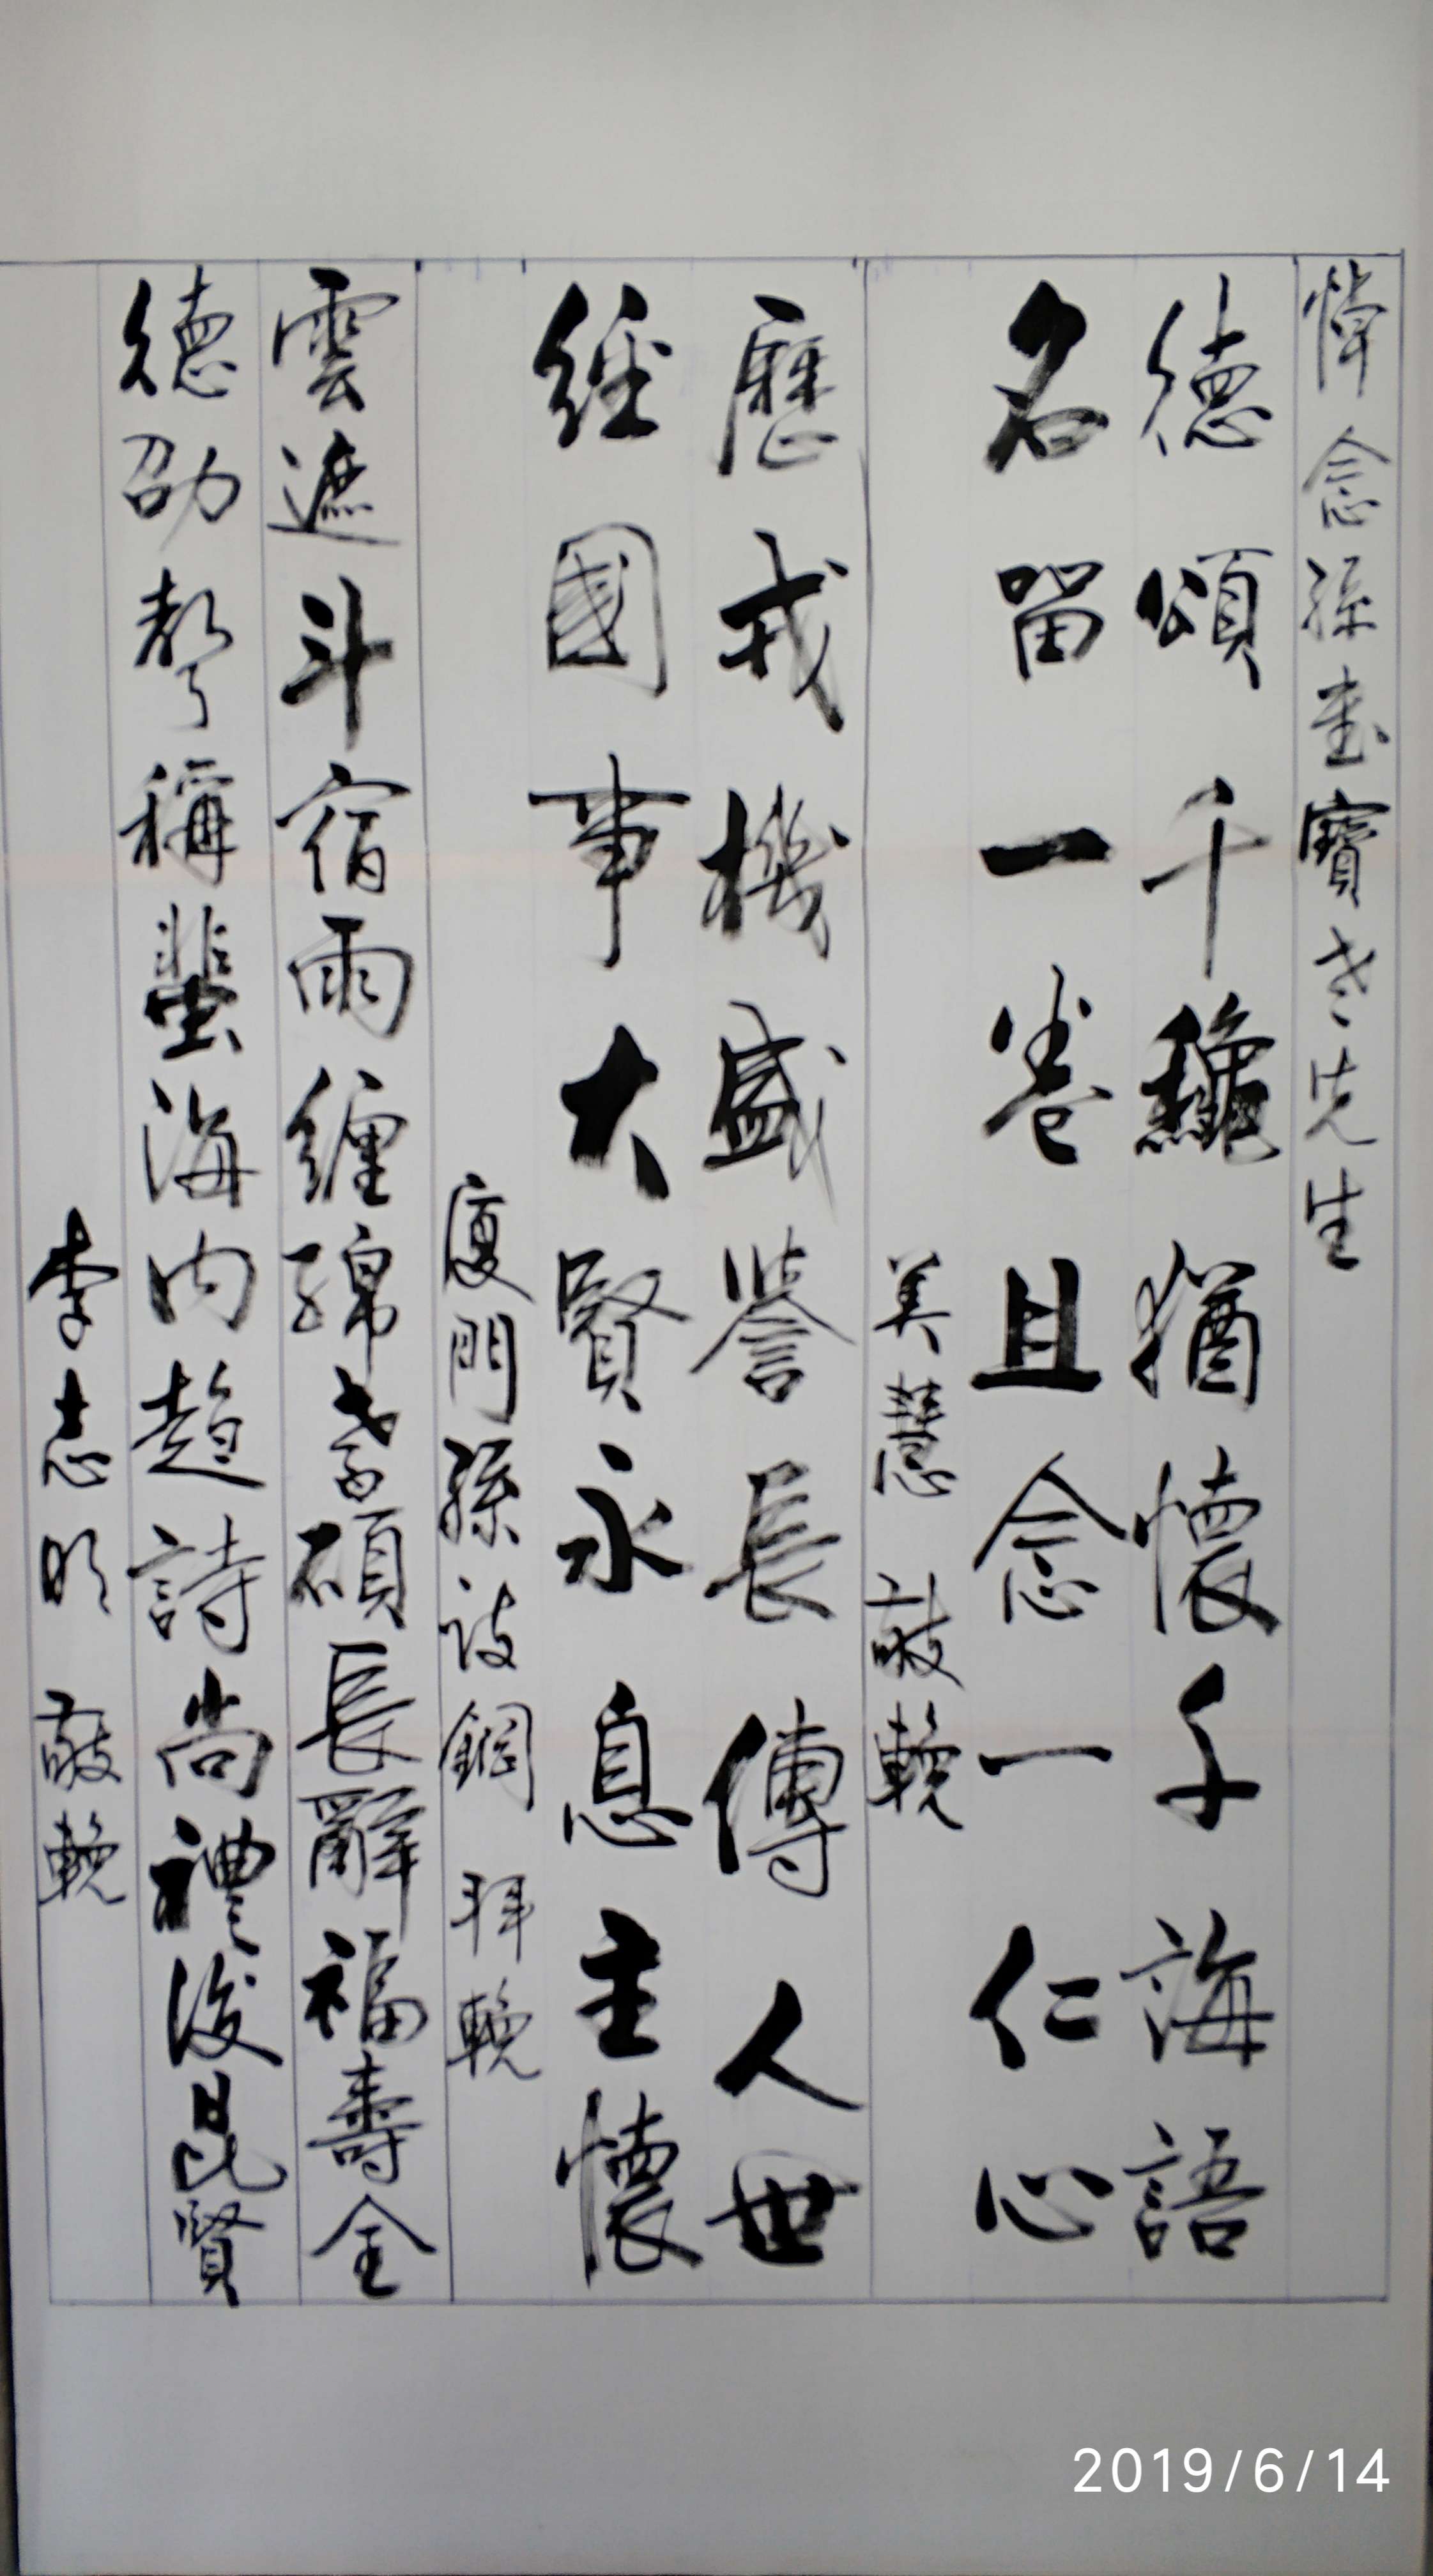 悼念孫書寶老先生
德頌千龝猶懷千誨語
名留一卷且念一仁心
美慧 敬輓
歷戎機盛譽長傳人世
經國事大賢永息主懷
廈門孫設鋼 拜輓
雲遮斗宿雨纏綿耆碩長辭福壽全
德劭譽稱蜚海內趨詩尚禮後昆賢
李志明 敬輓
2019/6/14